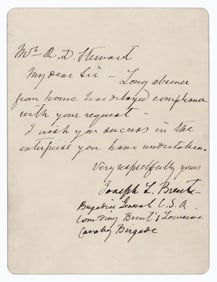 Mr. A. D. Steward
My dear Sir - Long absence
from home has delayed compliance
with your request -
I wish you success in the
enterprise you have undertaken.
Very respectfully yours
Joseph L. Brent
Brigadier General C.S.A.
Comdring Brent's Louisiana
Cavalry Brigade